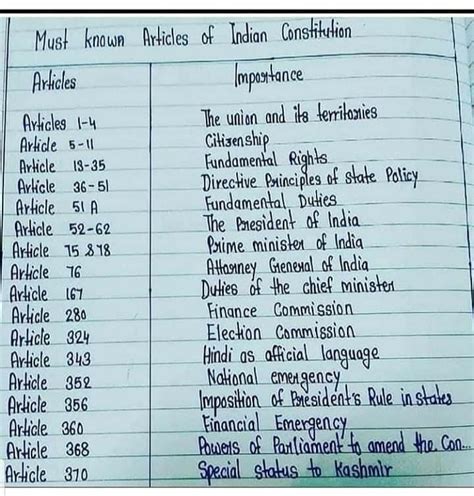 Must known Articles of Indian Constitution
Articles Importance
Articles 1-4 The union and its territories
Article 5-11 Citizenship
Article 13-35 Fundamental Rights
Article 36-51 Directive Principles of state Policy
Article 51 A Fundamental Duties
Article 52-62 The President of India
Article 75 & 78 Prime minister of India
Article 76 Attorney General of India
Article 167 Duties of the chief minister
Article 280 Finance Commission
Article 324 Election Commission
Article 343 Hindi as official language
Article 352 National emergency
Article 356 Imposition of President's Rule in states
Article 360 Financial Emergency
Article 368 Powers of Parliament to amend the Con...
Article 370 Special status to Kashmir